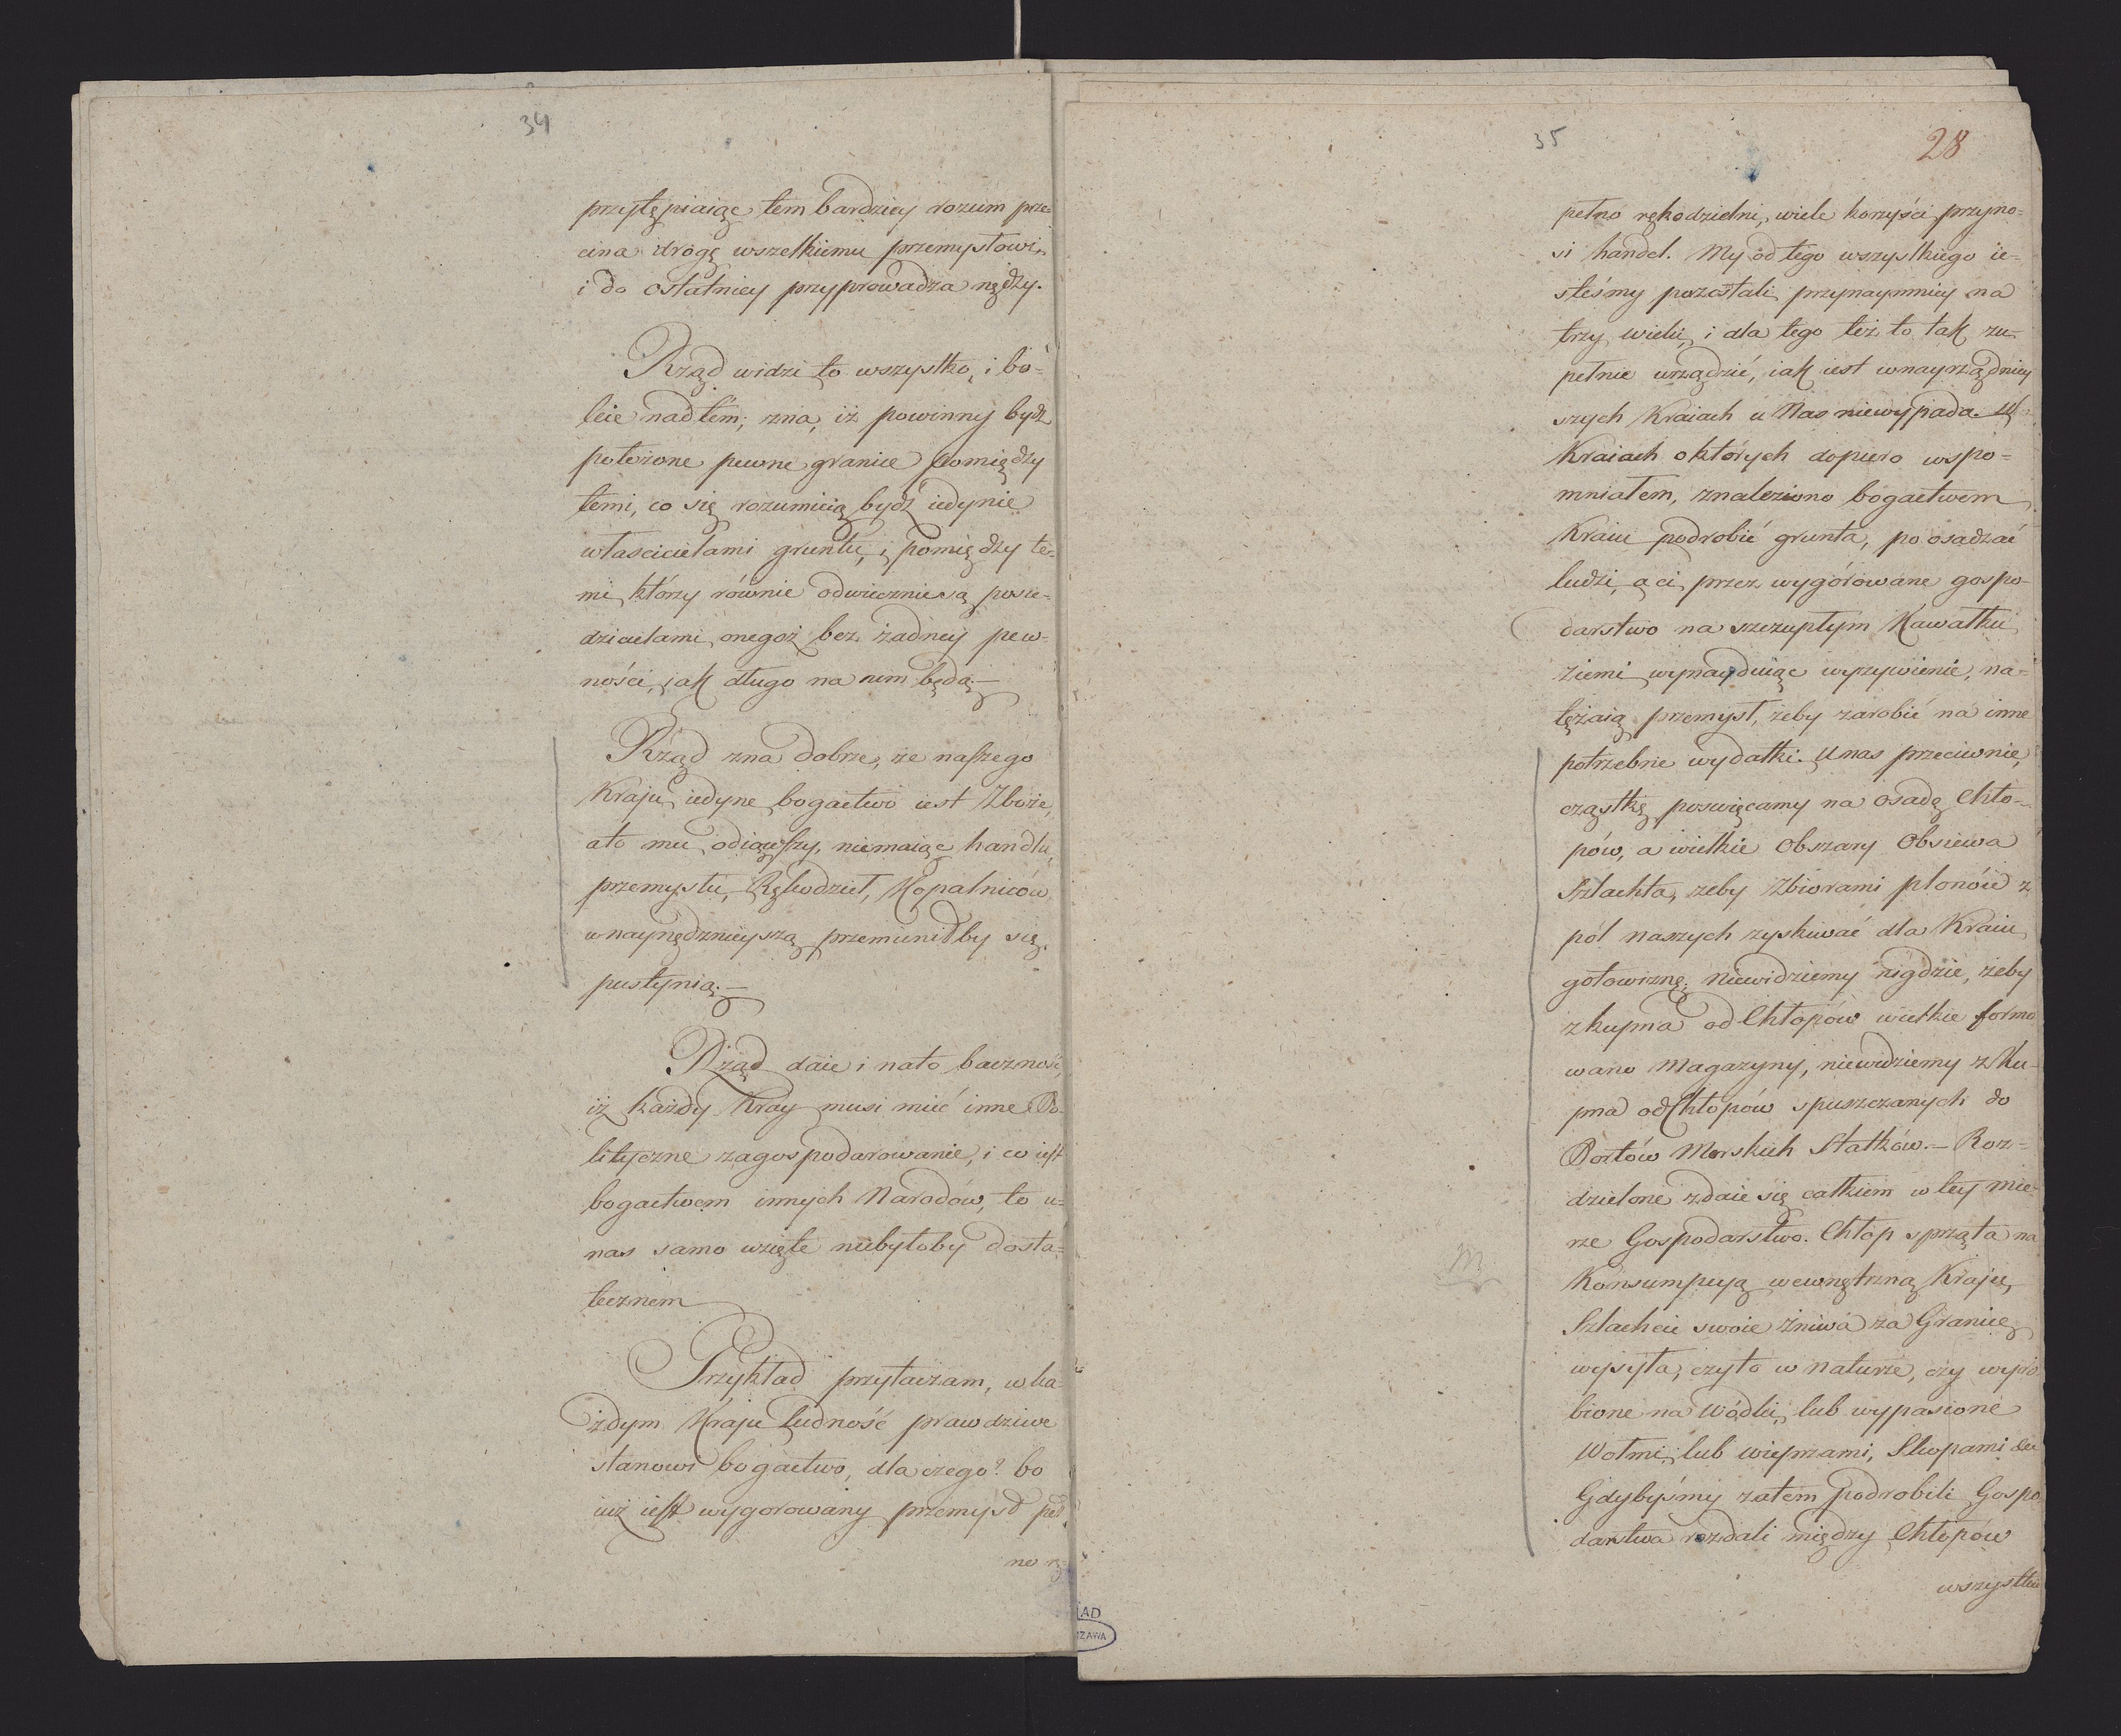 34
przytępiaiąc tem bardziey rozum prze=
cina drogę wszelkiemu przemysłowi,
i do ostatniey przyprowadza nędzy.
Rząd widzi to wszystko, i bo=
leie nadtém; zna, iż powinny bydź
położone pewne granice pomiędzy
temi, co się rozumieią bydź iedynie
właścicielami gruntu, i pomiędzy te=
mi, którzy równie odwiecznie są posie=
dzicielami onegoż bez żadney pew=
ności, jak długo na nim będą.—
Rząd zna dobrze, że naszego
Kraju iedyne bogactwo iest Zboże,
a to mu odiąwszy, niemaiąc handlu,
przemysłu, Rękodzieł, Kopalniców
w naynędznieyszą przemieniłby się
pustynią.—
Rząd daie i nato baczność,
iż każdy Kray musi mieć inne Po=
lityczne zagospodarowanie, i co iest
bogactwem innych Narodów, to u=
nas samo wzięte niebyłoby dosta=
tecznem
Przykład przytaczam, w ka=
żdym Kraju ludność prawdziwe
stanowi bogactwo, dla czego? bo
iuż iest wygorowany przemysł peł
no rę
35
28
pełno rękodzielni, wiele korzyści przyno=
si handel. My od tego wszystkiego ie=
steśmy pozostali przynaymniey na
trzy wieki, i dla tego też to tak zu=
pełnie urządzić, iak iest w nayrządniey
szych Kraiach u Nas niewypada. W
Kraiach o których dopiero wspo=
mniałem, znaleziono bogactwem
Kraiu podrobić grunta, poosadzać
ludzi, a ci przez wygórowane gospo=
darstwo na szczupłym Kawałku
ziemi wynayduiąc wyżywienie, na=
tężaią przemysł, żeby zarobić na inne
potrzebne wydatki. U nas przeciwnie,
cząstkę poswięcamy na osadę Chło=
pów, a wielkie Obszary Obsiewa
Szlachta, żeby Zbiorami plonów z
pól naszych zyskiwać dla Kraiu
gotowiznę; niewidziemy nigdzie, żeby
z kupna od Chłopów wielkie formo
wano Magazyny, niewidziemy z Ku=
pna od Chłopów spuszczanych do
Portów Morskich Statków.— Roz=
dzielone zdaie się całkiem w tey mie=
rze Gospodarstwo. Chłop sprząta na
Konsumpcyą wewnętrzną Kraju,
Szlachcic swoie żniwa za Granicę
wysyła, czyto w naturze, czy wyro
bione na Wódki, lub wypasione
Wołmi, lub wieprzami, Skopami etc
Gdybyśmy zatem podrobili Gospo
darstwa rozdali między Chłopów
wszystkie
ŁAD
ZAWA